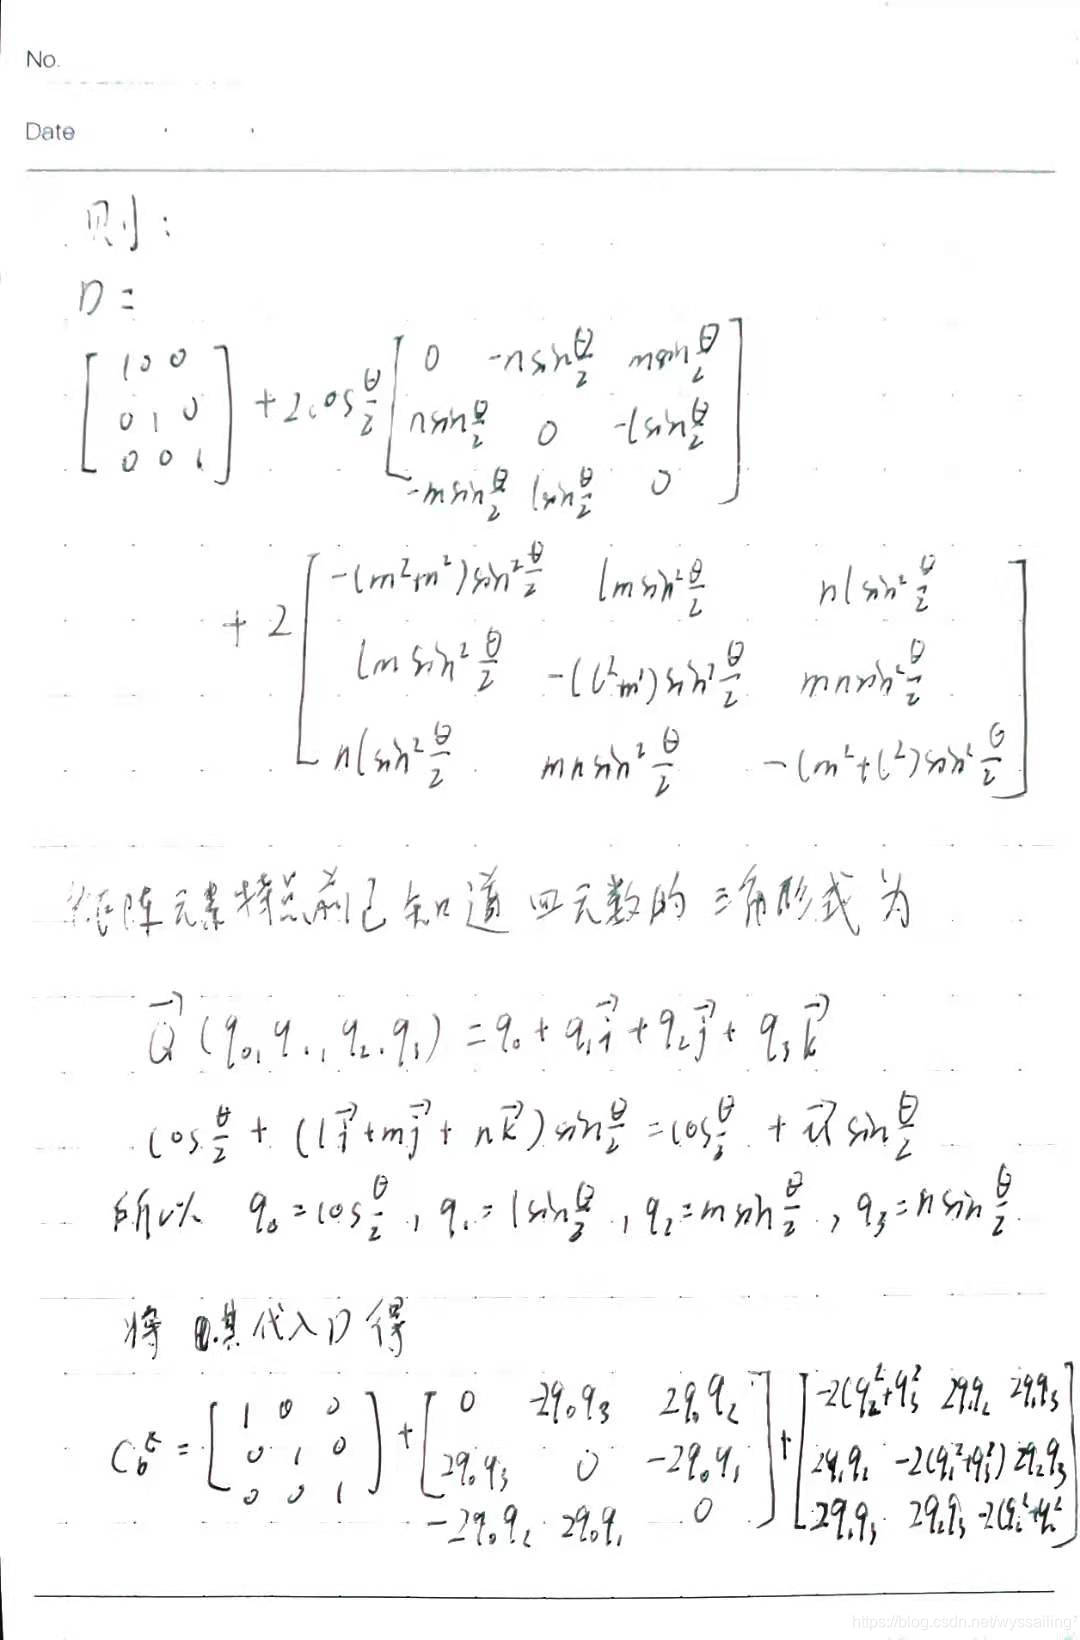 No.
Date
则：
D =
[ 1 0 0 ; 0 1 0 ; 0 0 1 ] + 2cos θ/2 [ 0 -n sin θ/2 m sin θ/2 ; n sin θ/2 0 -l sin θ/2 ; -m sin θ/2 l sin θ/2 0 ]
+ 2 [ -(m²+n²) sin² θ/2 lm sin² θ/2 nl sin² θ/2 ; lm sin² θ/2 -(l²+n²) sin² θ/2 mn sin² θ/2 ; nl sin² θ/2 mn sin² θ/2 -(m²+l²) sin² θ/2 ]
矩阵元素特点前已知道四元数的三角形式为
Q⃗ (q₀, q₁, q₂, q₃) = q₀ + q₁i⃗ + q₂j⃗ + q₃k⃗
cos θ/2 + (li⃗ + mj⃗ + nk⃗) sin θ/2 = cos θ/2 + u⃗ sin θ/2
所以 q₀ = cos θ/2 , q₁ = l sin θ/2 , q₂ = m sin θ/2 , q₃ = n sin θ/2
将 其代入D得
= [ 1 0 0 ; 0 1 0 ; 0 0 1 ] + [ 0 -2q₀q₃ 2q₀q₂ ; 2q₀q₃ 0 -2q₀q₁ ; -2q₀q₂ 2q₀q₁ 0 ] + [ -2(q₂²+q₃² 2q₁q₂ 2q₁q₃ ; 2q₁q₂ -2(q₁²+q₃²) 2q₂q₃ ; 2q₁q₃ 2q₂q₃ -2(q₁²+q₂² ]
https://blog.csdn.net/wyssailing